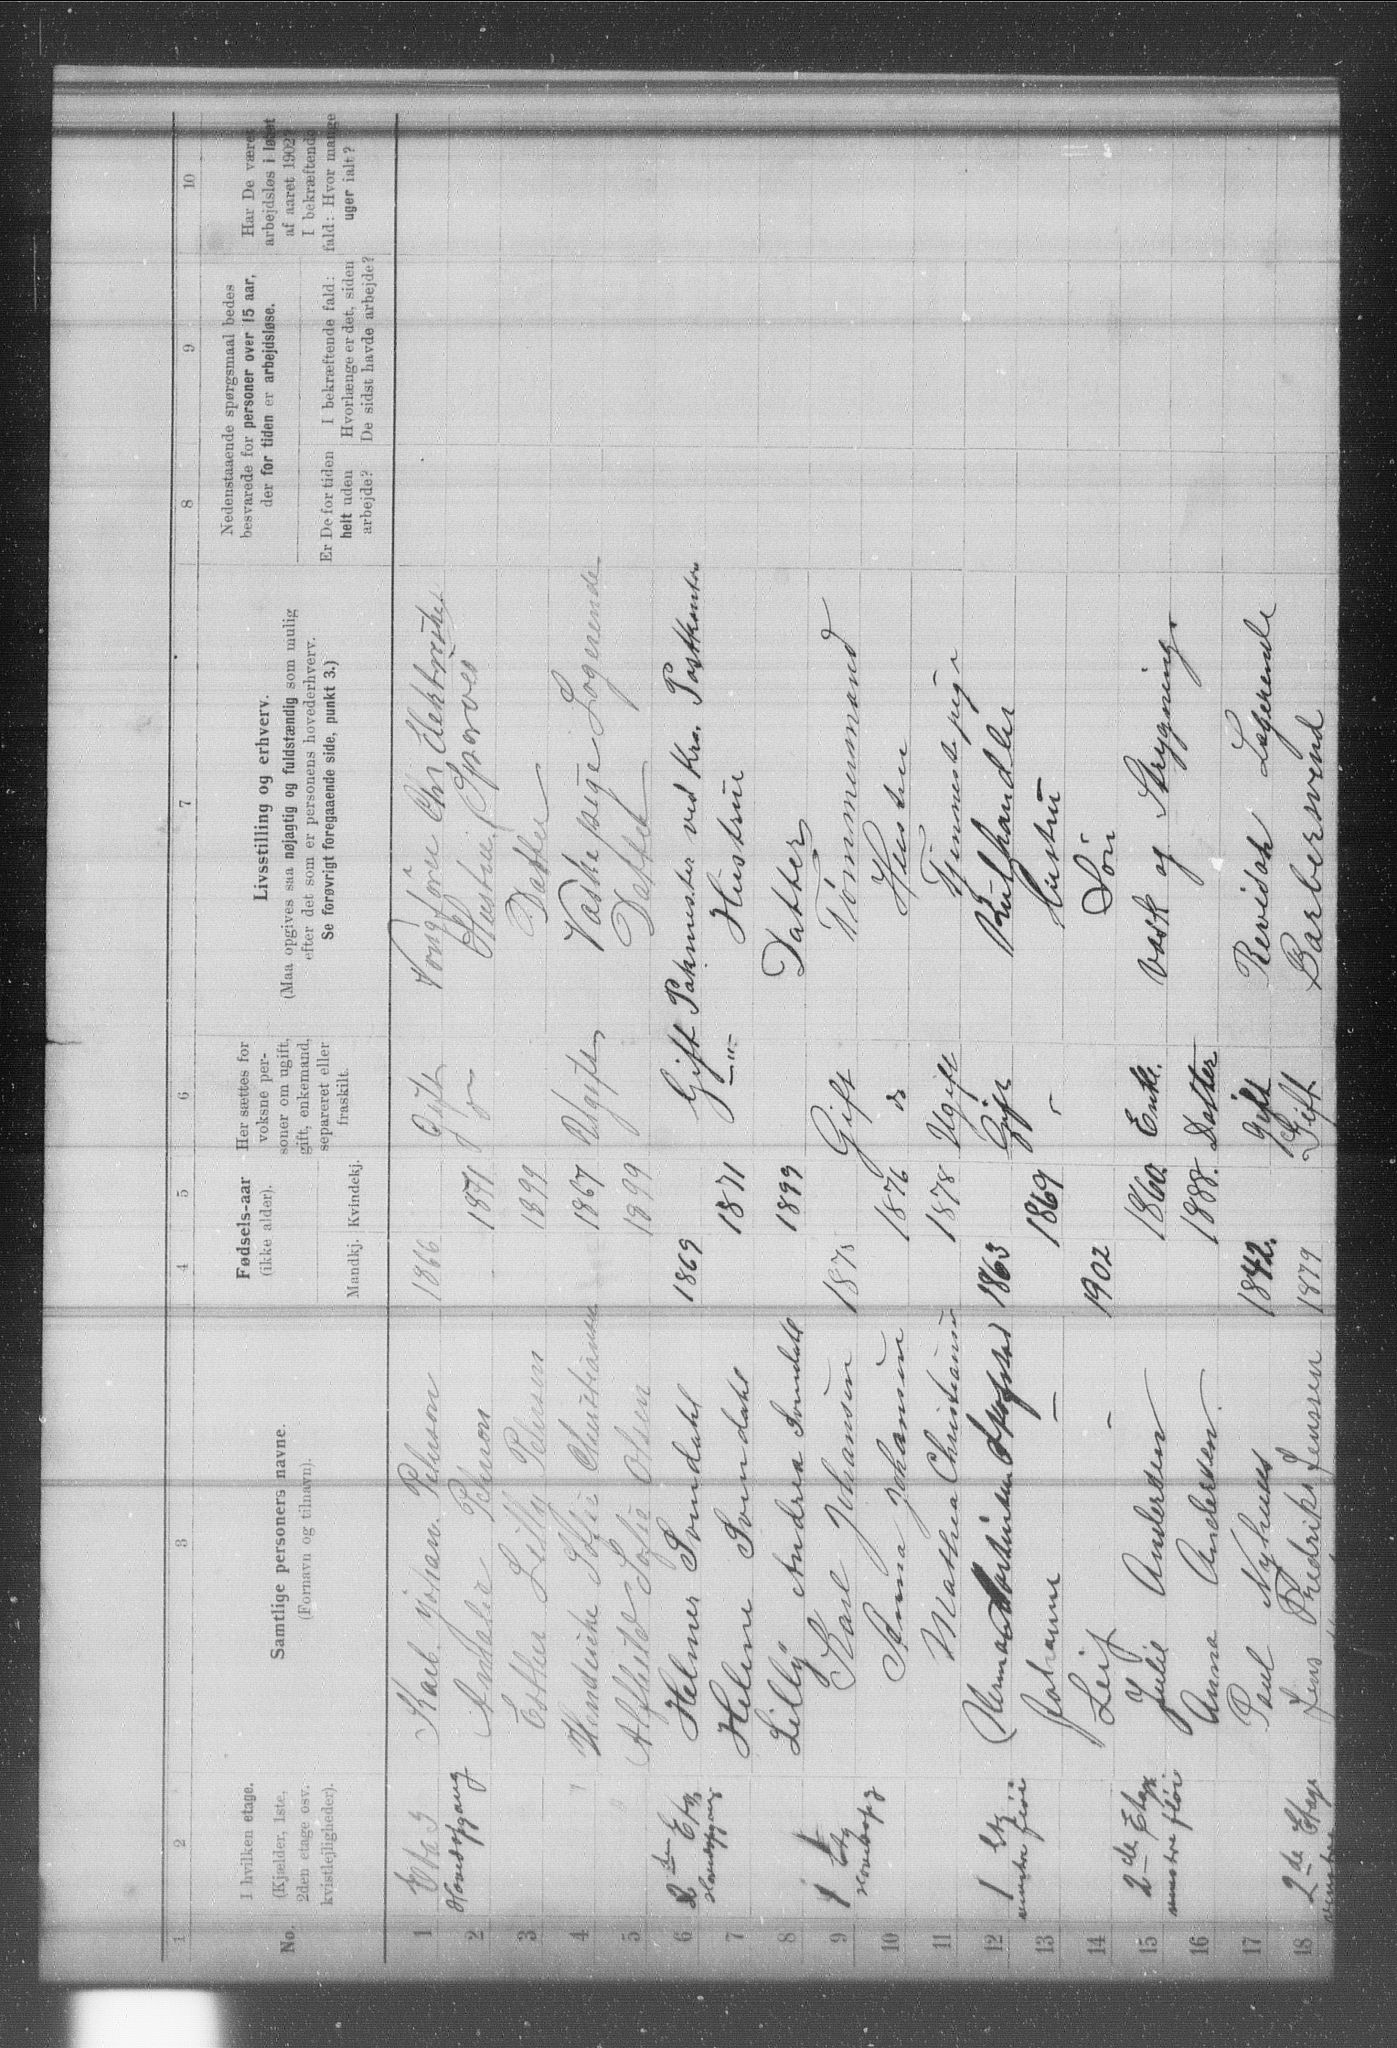 1 2 3 4 5 6 7 8 9 10
No.
I hvilken etage.
(Kjælder, 1ste,
2den etage osv.
kvistlejligheder).
Samtlige personers navne.
(Fornavn og tilnavn).
Fødsels-aar
(ikke alder).
Mandkj. Kvindekj.
Her sættes for
voksne per-
soner om ugift,
gift, enkemand,
separeret eller
fraskilt.
Livsstilling og erhverv.
(Maa opgives saa nøjagtig og fuldstændig som mulig
efter det som er personens hovederhverv.
Se forøvrigt foregaaende side, punkt 3.)
Nedenstaaende spørgsmaal bedes
besvarede for personer over 15 aar,
der for tiden er arbejdsløse.
Er De for tiden
helt uden
arbejde?
I bekræftende fald:
Hvorlænge er det, siden
De sidst havde arbejde?
Har De været
arbejdsløs i løbet
af aaret 1902?
I bekræftende
fald: Hvor mange
uger ialt?
1 Karl Johan Peterson 1866 Gift
Hovedopgang
2 Peterson 1871 Hustru
3 Esther Lilly Peterson 1899 Datter
4 Hendrikke Sofie 1867 Ugift Vaskepige Logerende
5 Alfhild Sofie Olsen 1899 Datter
6 Etg Helmer Sondahl 1869 Gift Pakmester ved Kra. Postkontor
Hovedopgang
7 Helene Sondahl 1871 -"- Hustru
8 Lilly Andrea Sondahl 1899 Datter
9 1 Etg Karl Johansen 187 Gift Tømmermand
10 Anna Johansen 1876 do Hustru
11 Mathea Christiansen 1878 Ugift Tjenestepige
12 1 Etg Herman 1863 Gift Kulhandler
venstre fløi
13 Johanne – 1869 Hustru
14 Leif – 1902 Søn
15 2de Etage Julie Andersen 1860. Enke. Vask og Strygning.
venstre fløi
16 Anna Andersen. 1888. Datter
17 Paul Nyhuus 1842. gift Revisor Logerende
18 2de Etage Jens Fredrik Jenssen 1879 Gift Barbersvend
venstre